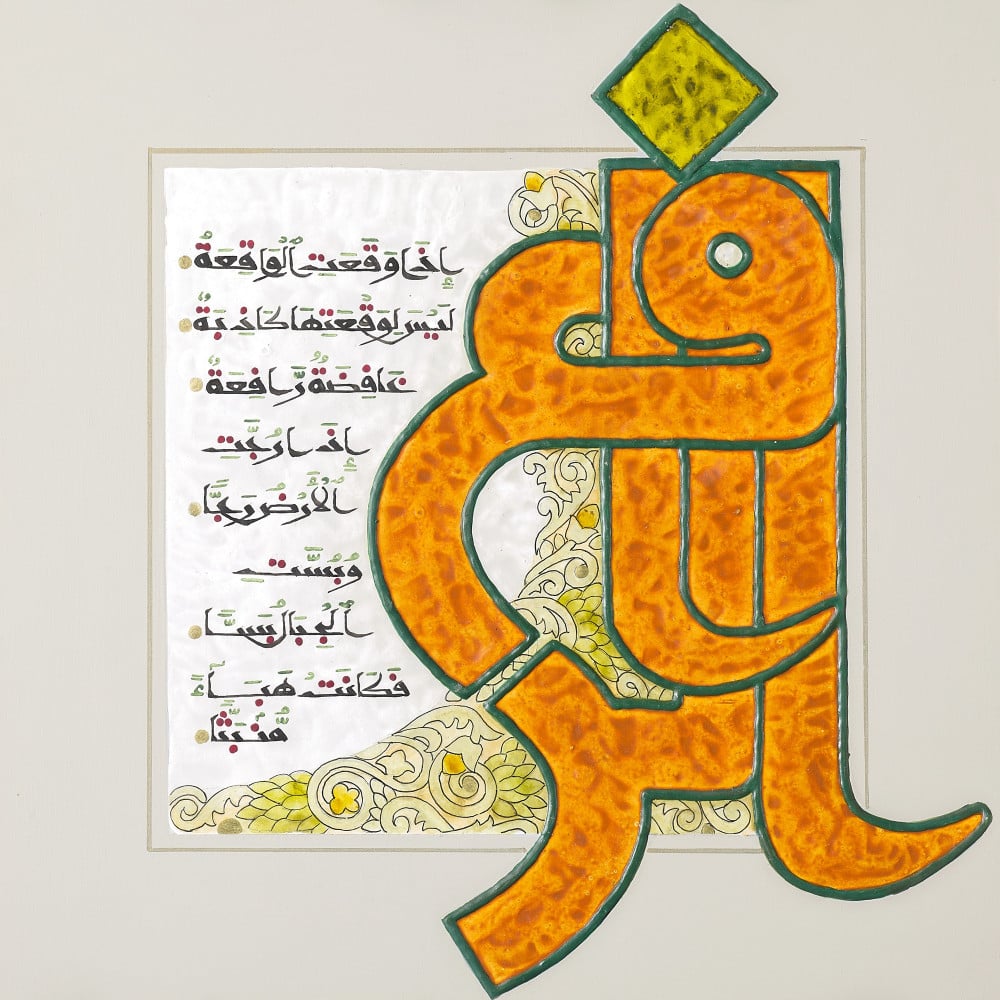 إِذَا وَقَعَتِ ٱلْوَاقِعَةُ
لَيْسَ لِوَقْعَتِهَا كَاذِبَةٌ
خَافِضَةٌ رَّافِعَةٌ
إِذَا رُجَّتِ
ٱلْأَرْضُ رَجًّا
وَبُسَّتِ
ٱلْجِبَالُ بَسًّا
فَكَانَتْ هَبَآءً
مُّنْبَثًّا